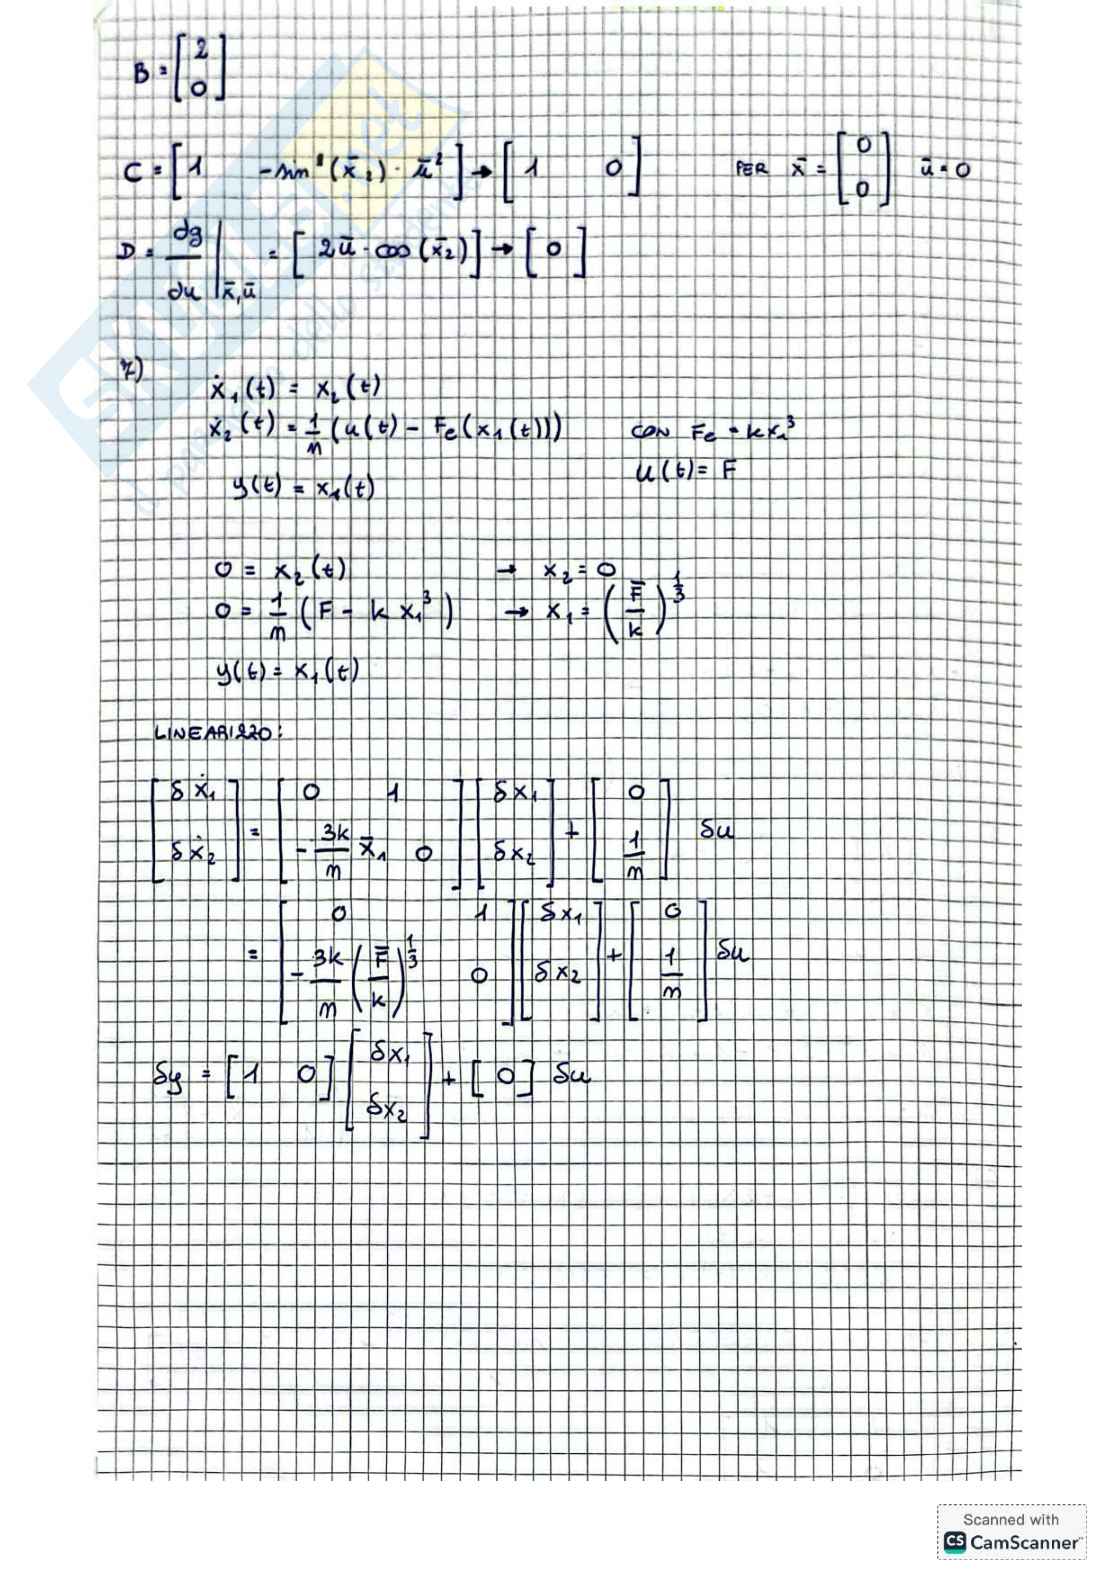 B = [2
0]
C = [1 -sin¹(x̄₂) · ū²] → [1 0] PER x̄ = [0
0] ū = 0
D = dg/du |x̄,ū = [2ū · cos(x̄₂)] → [0]
7)
ẋ₁(t) = x₂(t)
ẋ₂(t) = 1/m (u(t) - Fe(x₁(t))) CON Fe = kx₁³
u(t) = F
y(t) = x₁(t)
0 = x₂(t) → x₂ = 0
0 = 1/m (F - k x₁³) → x₁ = (F̄/k)^1/3
y(t) = x₁(t)
LINEARIZZO:
[δẋ₁
δẋ₂] = [0 1
-3k/m x̄₁ 0] [δx₁
δx₂] + [0
1/m] δu
= [0 1
-3k/m (F̄/k)^1/3 0] [δx₁
δx₂] + [0
1/m] δu
δy = [1 0] [δx₁
δx₂] + [0] δu
Scanned with
CS CamScanner